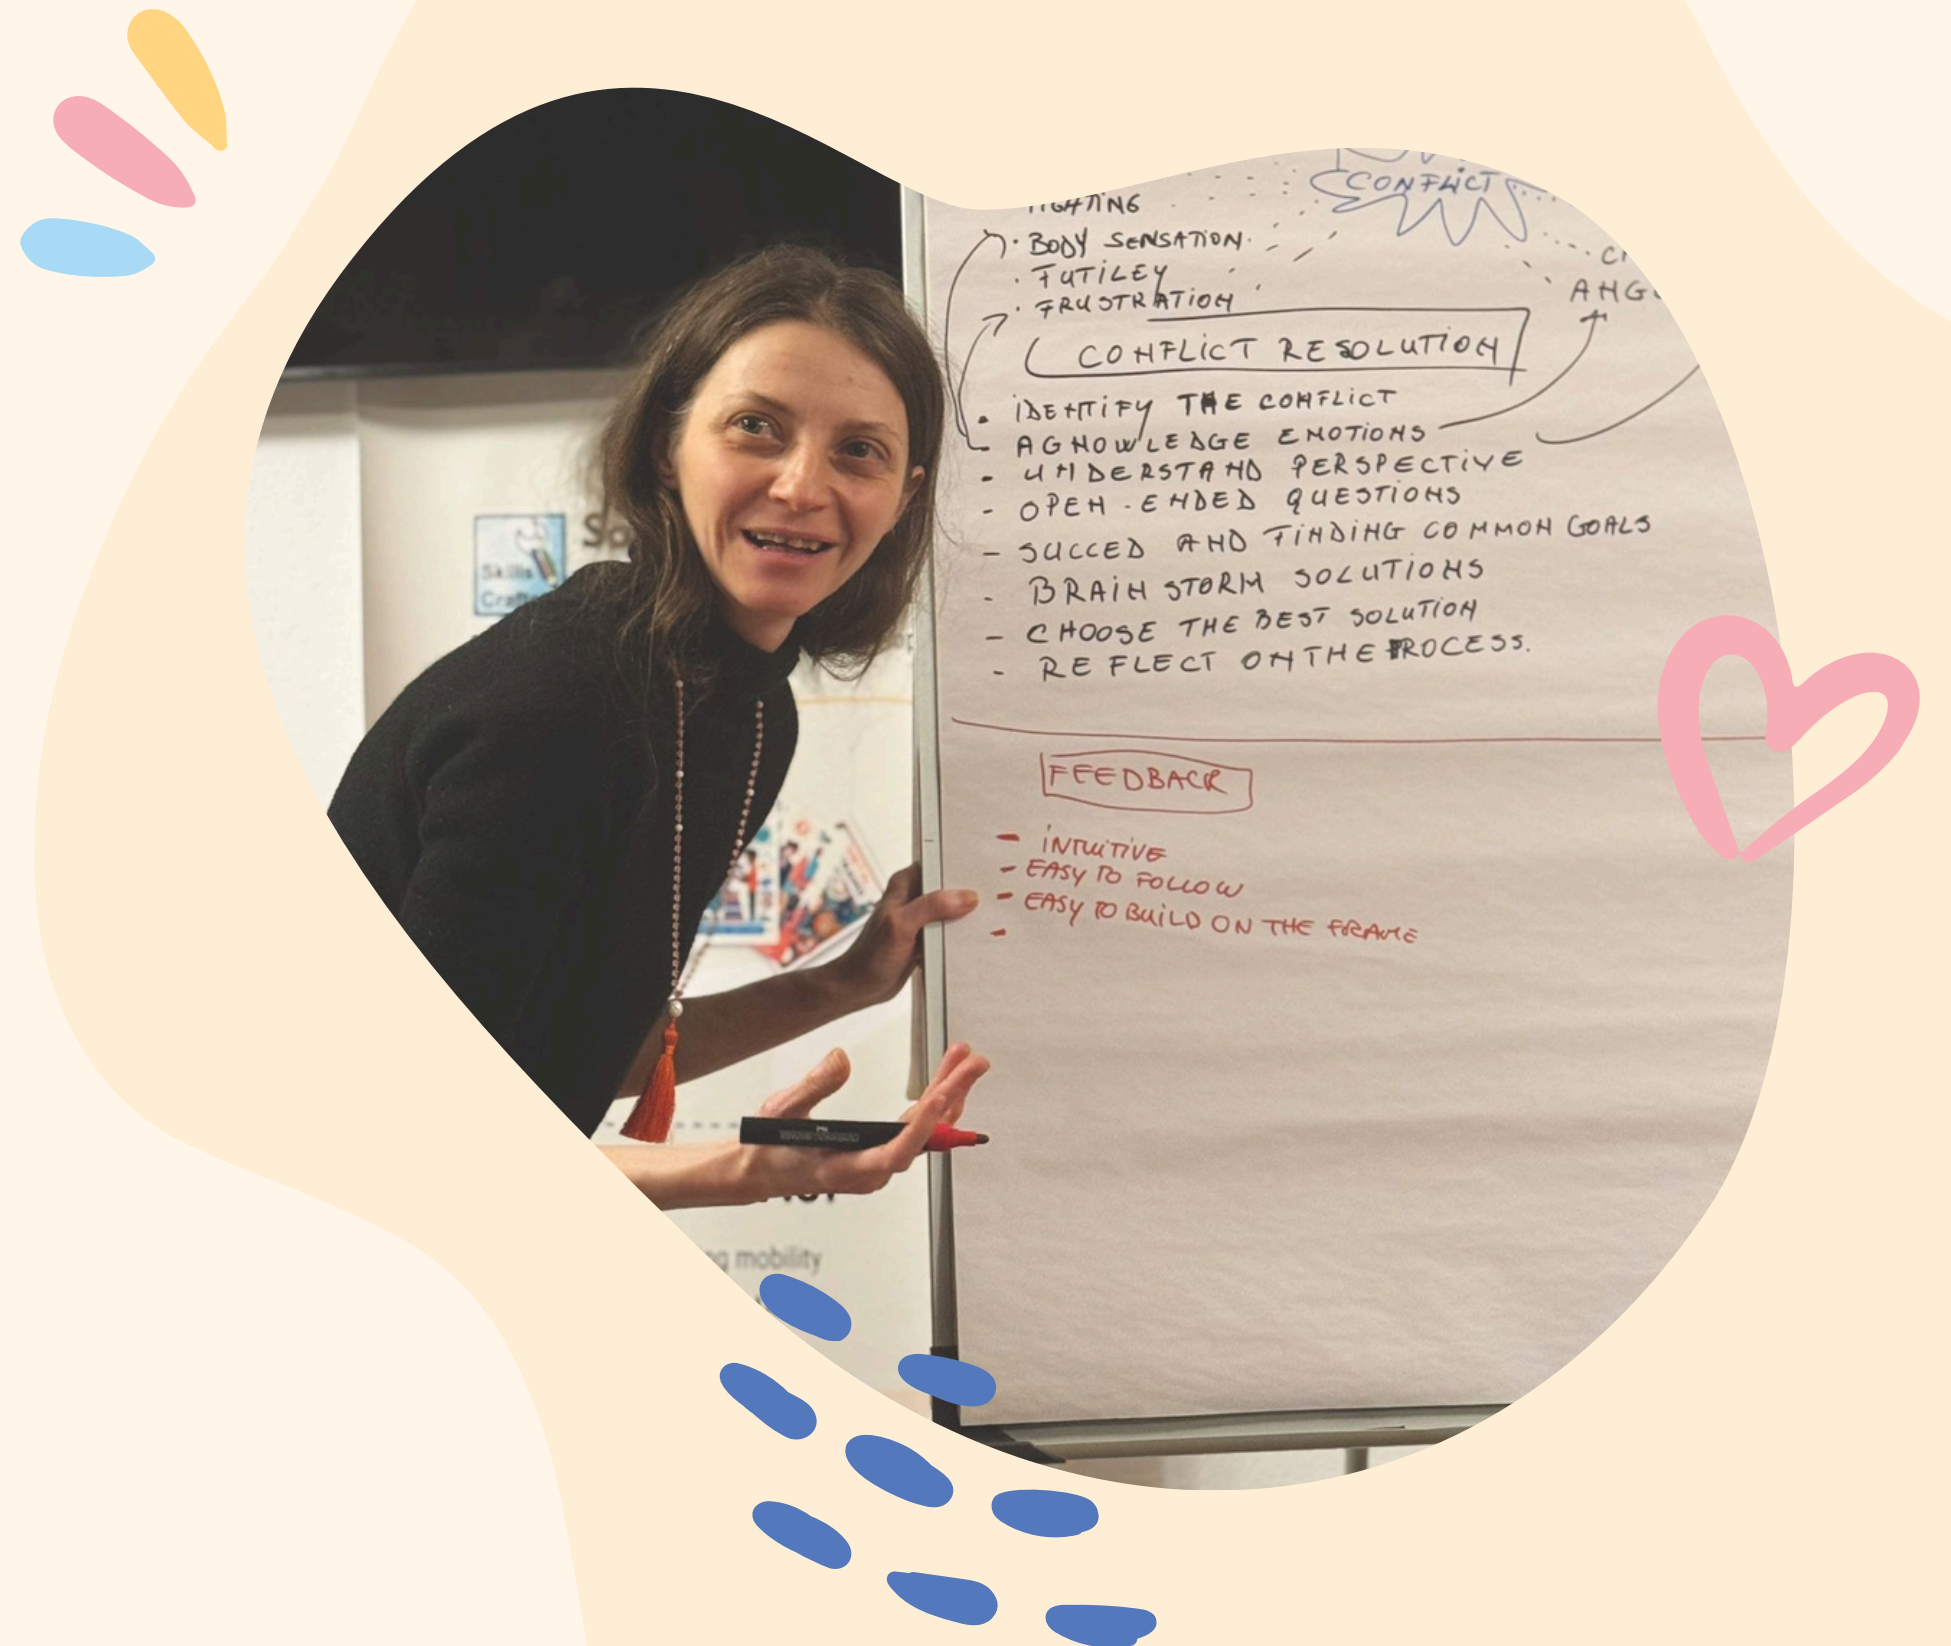 CONFLICT
FIGHTING
· BODY SENSATION
· FUTILEY
· FRUSTRATION
CONFLICT RESOLUTION
· IDENTIFY THE CONFLICT
- AGNOWLEDGE EMOTIONS
- UNDERSTAND PERSPECTIVE
- OPEN-ENDED QUESTIONS
- SUCCED AND FINDING COMMON GOALS
- BRAIN STORM SOLUTIONS
- CHOOSE THE BEST SOLUTION
- REFLECT ON THE PROCESS.
FEEDBACK
- INTUITIVE
- EASY TO FOLLOW
- EASY TO BUILD ON THE FRAME
-
Skills
mobility